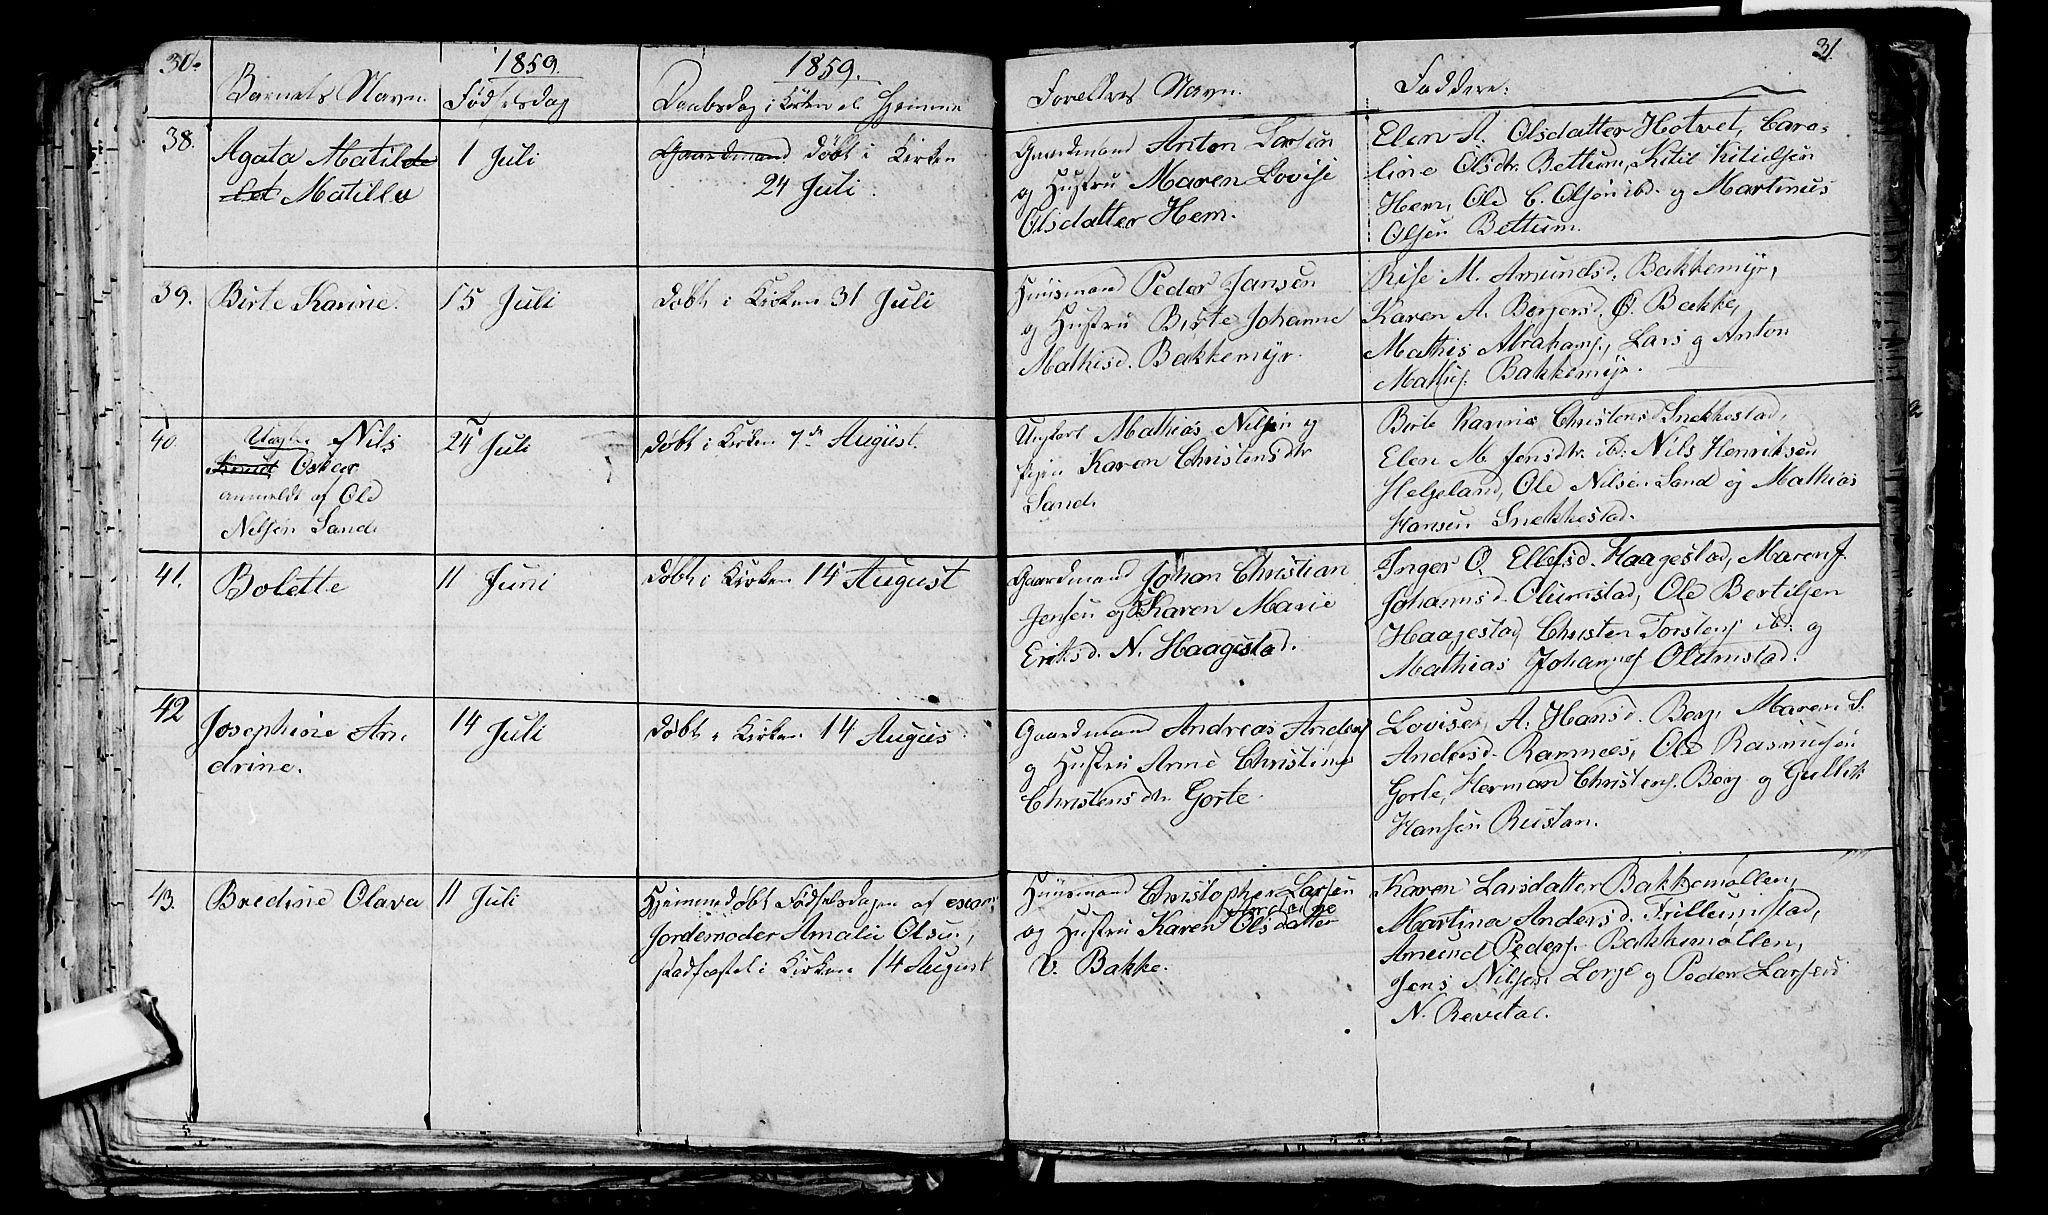 30.
1859.
1859.
Barnets Navn.
Fødselsdag
Daabsdag i Kirken el Hjemme
38.
Agata Matilde
Matilla
1 Juli
Gaardmand Døbt i Kirken
24 Juli.
39.
Birte Karine.
15 Juli
Døbt i Kirken 31 Juli
40.
Uægte Nils
Knud Oskar
anmeldt af Ole
Nilsen Sand.
24 Juli
Døbt i Kirken 7de August.
41.
Bolette
11 Juni
Døbt i Kirken 14 August
42
Josephine An,
drine.
14 Juli
Døbt i Kirken 14 Augus
43.
Bredine Olava
11 Juli
Hjemmedøbt Fødselsdagen af exam,
Jordemoder Amalie Olsen,
stadfæstet i Kirken 14 August
31.
Forældres Navn.
Faddere.
Gaardmand Anton Larsen
og Hustru Maren Lovise
Olsdatter Hem.
Elen A. Olsdatter Hotvet, Caro,
line Olsdr. Bettum, Kitil Kitilsen
Hem, Ole C. Olsen ibd. og Martinus
Olsen Bettum.
Huusmand Peder Jansen
og Hustru Birte Johanne
Mathisd. Bakkemyr.
Rise M. Amundsd. Bakkemyr,
Karen A. Borgersd. Ø. Bakke,
Mathis Abrahams., Lars og Anton
Mathis. Bakkemyr.
Ungkarl Mathias Nilsen og
Pige Karen Christensdtr
Sand.
Birte Karine Christensd Snekkestad,
Elen M. Jensdtr. ibd. Nils Henriksen
Helgeland, Ole Nilsen Sand og Mathias
Hansen Snekkestad.
Gaardmand Johan Christian
Jensen og Karen Marie
Eriksd. N. Haagestad.
Inger O. Ellefsd. Haagestad, Maren J.
Johannisd. Olumstad, Ole Bertilsen
Haagestad, Christen Torstens. ibd. og
Mathias Johannes. Olumstad.
Gaardmand Andreas Anders
og Hustru Anne Christine
Christensdtr. Gorte.
Lovise A. Hansd. Berg, Maren S.
Andersd. Ramnes, Ole Rasmusen
Gorte, Herman Christens. Berg og Gullik
Hansen Rustan.
Huusmand Christopher Larsen
og Hustru Karen Olsdatter
V. Bakke.
Karen Larsdatter Bakkemøllen,
Martina Andersd. Trillumstad,
Amund Peders. Bakkemøllen,
Jens Nilsen Lorge og Peder Larsen
N. Revetal.